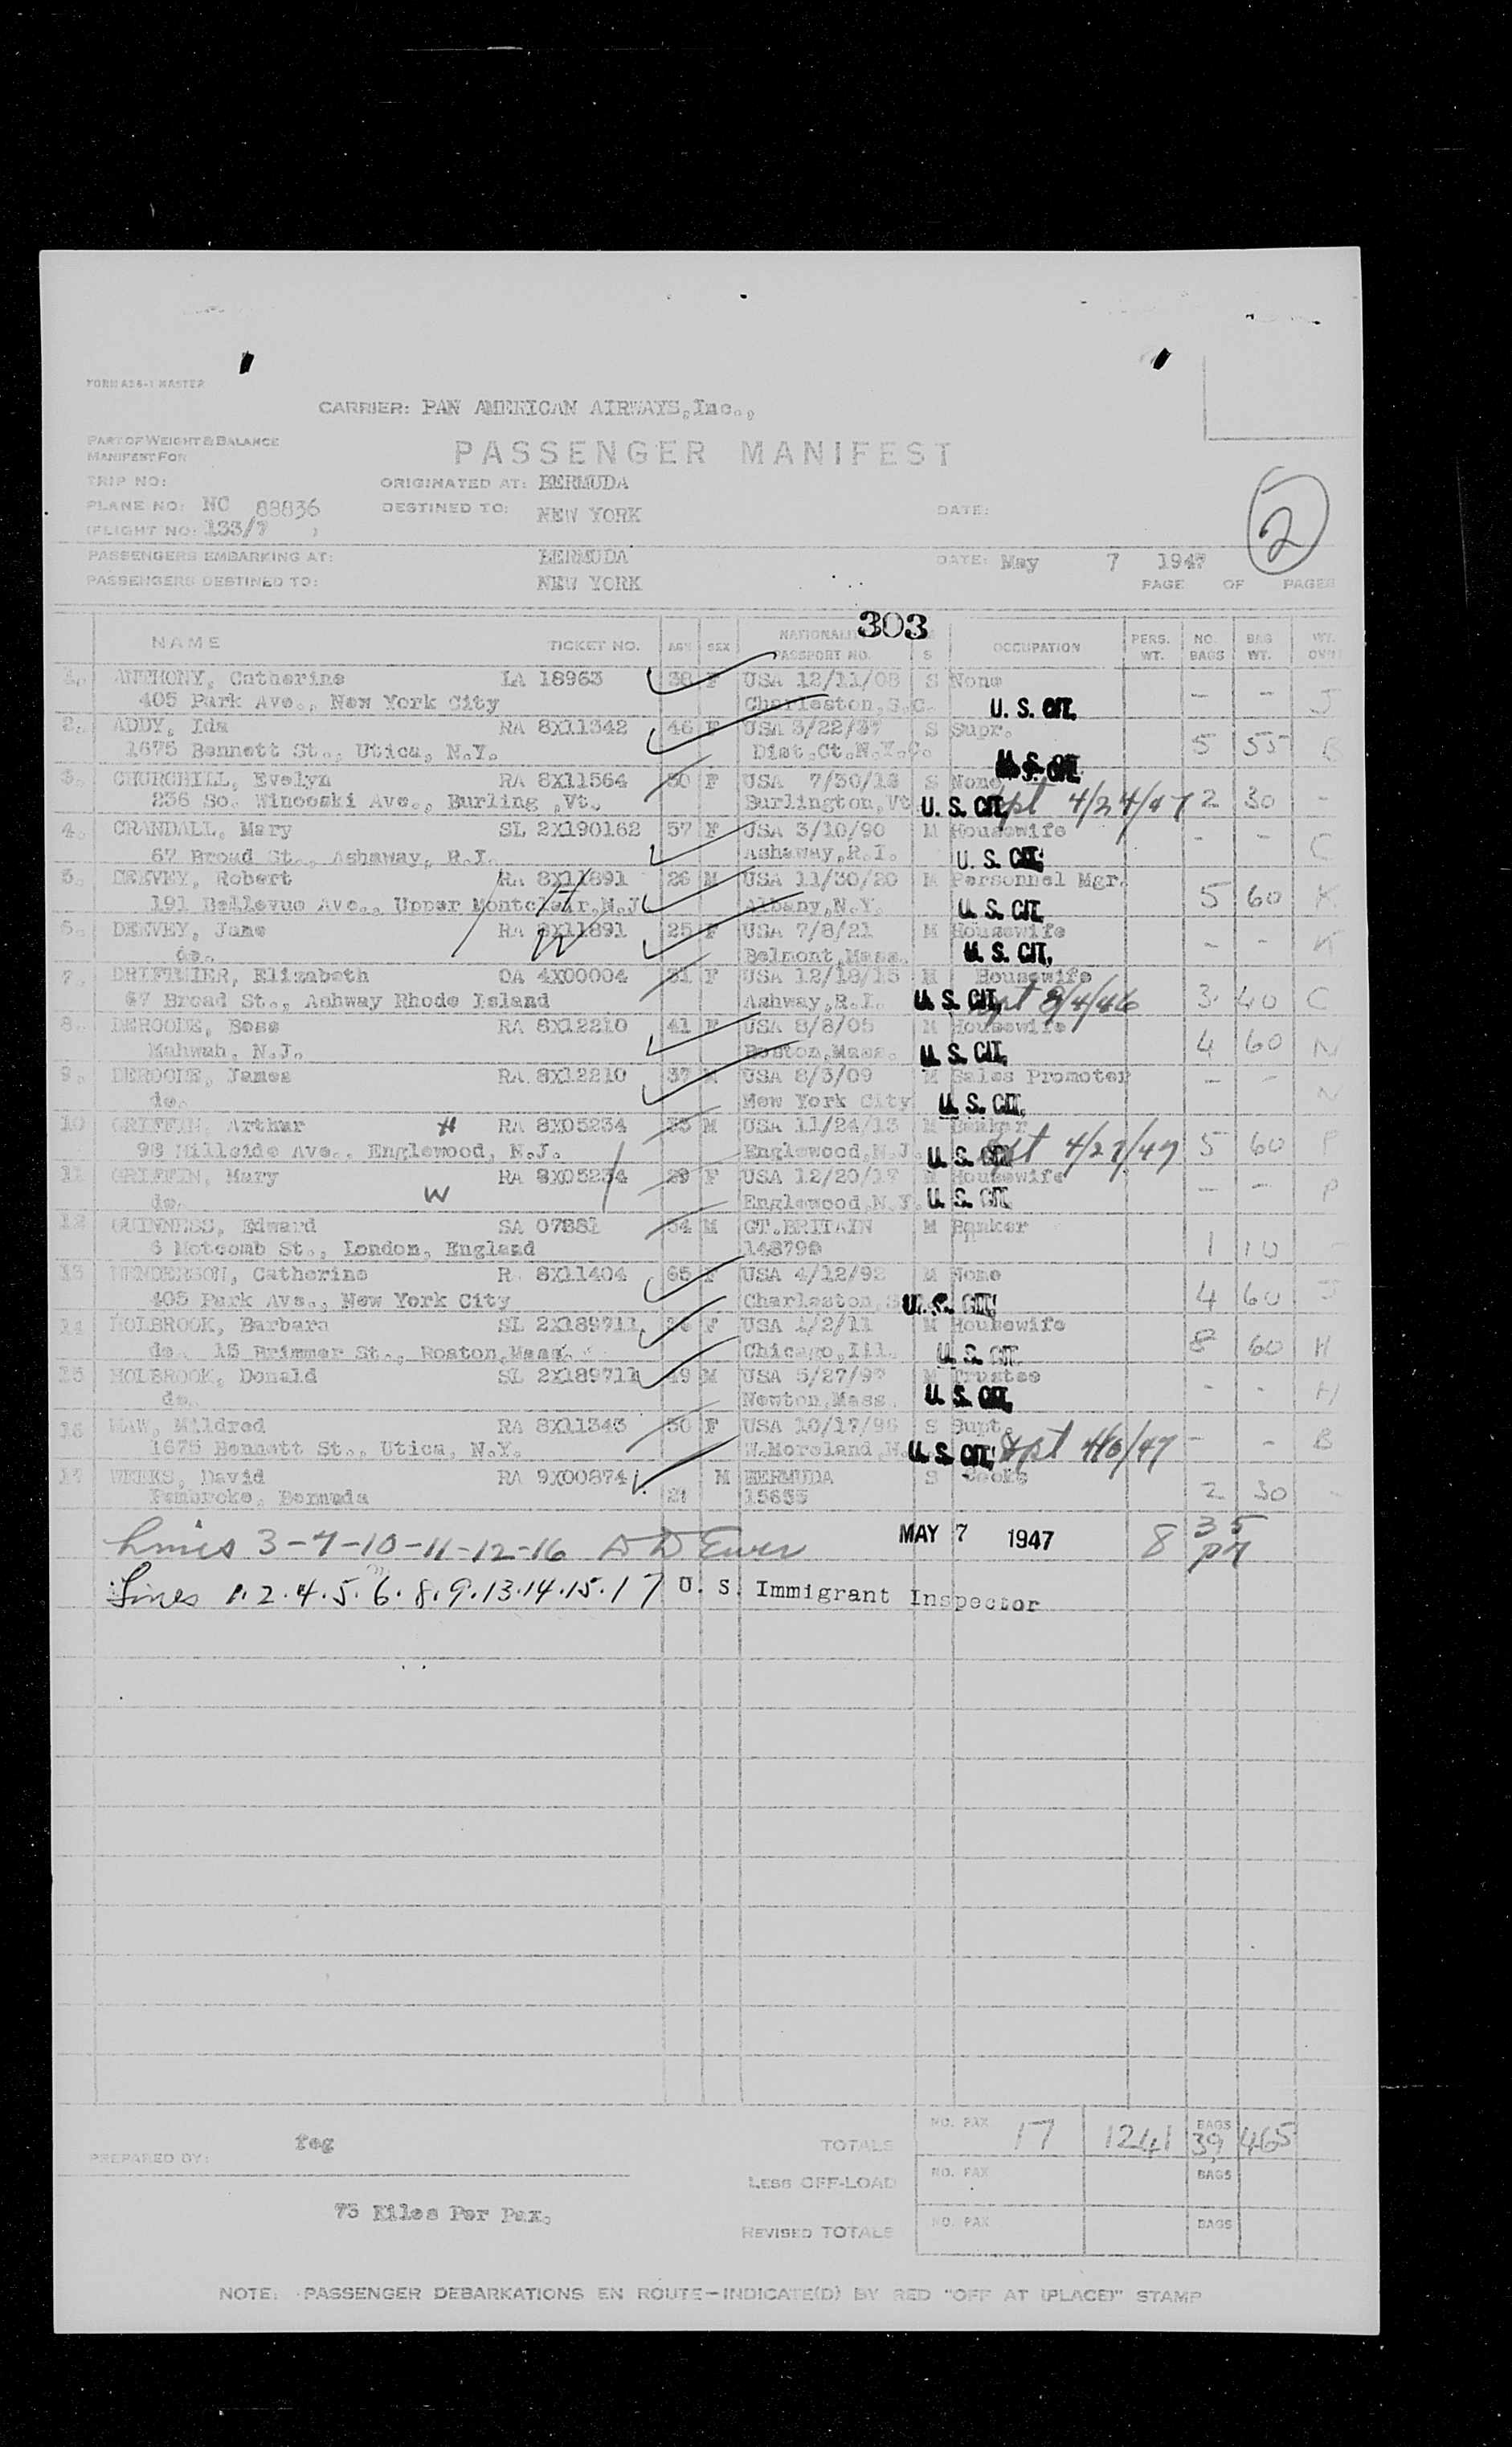 FORM A26-1 MASTER
CARRIER: PAN AMERICAN AIRWAYS,Inc.,
PART OF WEIGHT & BALANCE
MANIFEST FOR
PASSENGER MANIFEST
TRIP NO: ORIGINATED AT: BERMUDA
PLANE NO: NC 88836 DESTINED TO: NEW YORK DATE:
(FLIGHT NO: 133/7 )
2
PASSENGERS EMBARKING AT: BERMUDA DATE: May 7 1947
PASSENGERS DESTINED TO: NEW YORK PAGE OF PAGES
303
NAME TICKET NO. AGE SEX PASSPORT NO. S OCCUPATION PERS. WT. NO. BAGS BAG WT. WT.
1. ANTHONY, Catherine LA 18963 38 F USA 12/11/08 S None - - J
405 Park Ave., New York City Charleston,S.C. U. S. CIT.
2. ADDY, Ida RA 8X11342 46 F USA 3/22/37 S Supr. 5 55 B
1675 Bennett St., Utica, N.Y. Dist.Ct.N.Y.C. U. S. CIT.
3. CHURCHILL, Evelyn RA 8X11564 30 F USA 7/30/16 S None 2 30 -
236 So. Winooski Ave., Burling ,Vt. Burlington,Vt U. S. CIT. 4/24/47
4. CRANDALL, Mary SL 2X190162 57 F USA 3/10/90 M Housewife - - C
67 Broad St., Ashaway, R.I. Ashaway,R.I. U. S. CIT.
5. DEWVEY, Robert RA 8X11891 26 M USA 11/30/20 M Personnel Mgr. 5 60 K
191 Bellevue Ave., Upper Montclair,N.J Albany,N.Y. U. S. CIT.
H
6. DEWVEY, Jane RA 8X11891 25 F USA 7/8/21 M Housewife - - K
do. W Belmont,Mass. U. S. CIT.
7. DRIFTMIER, Elizabeth CA 4X00004 31 F USA 12/18/15 M Housewife 3 40 C
67 Broad St., Ashway Rhode Island Ashway,R.I. U. S. CIT. 8/4/46
8. DEROODE, Bess RA 8X12210 41 F USA 8/8/05 M Housewife 4 60 N
Mahwah, N.J. Boston,Mass. U. S. CIT.
9. DEROODE, James RA 8X12210 37 M USA 8/3/09 M Sales Promoter - - N
do. New York City U. S. CIT.
10 GRIFFIN, Arthur H RA 8X05234 33 M USA 11/24/13 M Banker 5 60 P
98 Hillside Ave., Englewood, N.J. Englewood,N.J. U. S. CIT 4/27/47
11 GRIFFIN, Mary RA 8X05234 29 F USA 12/20/17 M Housewife - - P
do. W Englewood,N.Y. U. S. CIT.
12 GUINNESS, Edward SA 07881 54 M GT.BRITAIN M Banker 1 10
6 Motcomb St., London, England 148790
13 HENDERSON, Catherine R. 8X11404 65 F USA 4/12/92 M None 4 60 J
405 Park Ave., New York City Charleston, U. S. CIT.
14 HOLBROOK, Barbara SL 2X189711 F USA 1/2/11 M Housewife 8 60 H
do. 15 Brimmer St., Boston,Mass. Chicago,Ill. U. S. CIT.
15 HOLBROOK, Donald SL 2X189711 49 M USA 5/27/97 M Trustee - - H
do. Newton,Mass. U. S. CIT.
16 MAW, Mildred RA 8X11343 50 F USA 10/17/96 S Supt. - - B
1675 Bennett St., Utica, N.Y. W.Moreland, U. S. CIT. 4/6/47
17 WEEKS, David RA 9X00874 M BERMUDA S Cooks 2 30 -
Pembroke, Bermuda 21 15655
Lines 3-7-10-11-12-16 MAY 7 1947 8 35 PM
Lines 1.2.4.5.6.8.9.13.14.15.17 U. S. Immigrant Inspector
TOTALS NO. PAX 17 1241 BAGS 39 465
PREPARED BY: feg
LESS OFF-LOAD NO. PAX BAGS
73 Kilos Per Pax.
REVISED TOTALS NO. PAX BAGS
NOTE: PASSENGER DEBARKATIONS EN ROUTE—INDICATE(D) BY RED "OFF AT (PLACE)" STAMP